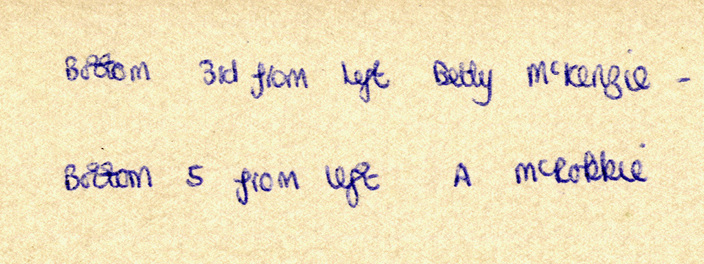 Bottom 3rd from left Betty McKenzie -
Bottom 5 from left A McRobbie